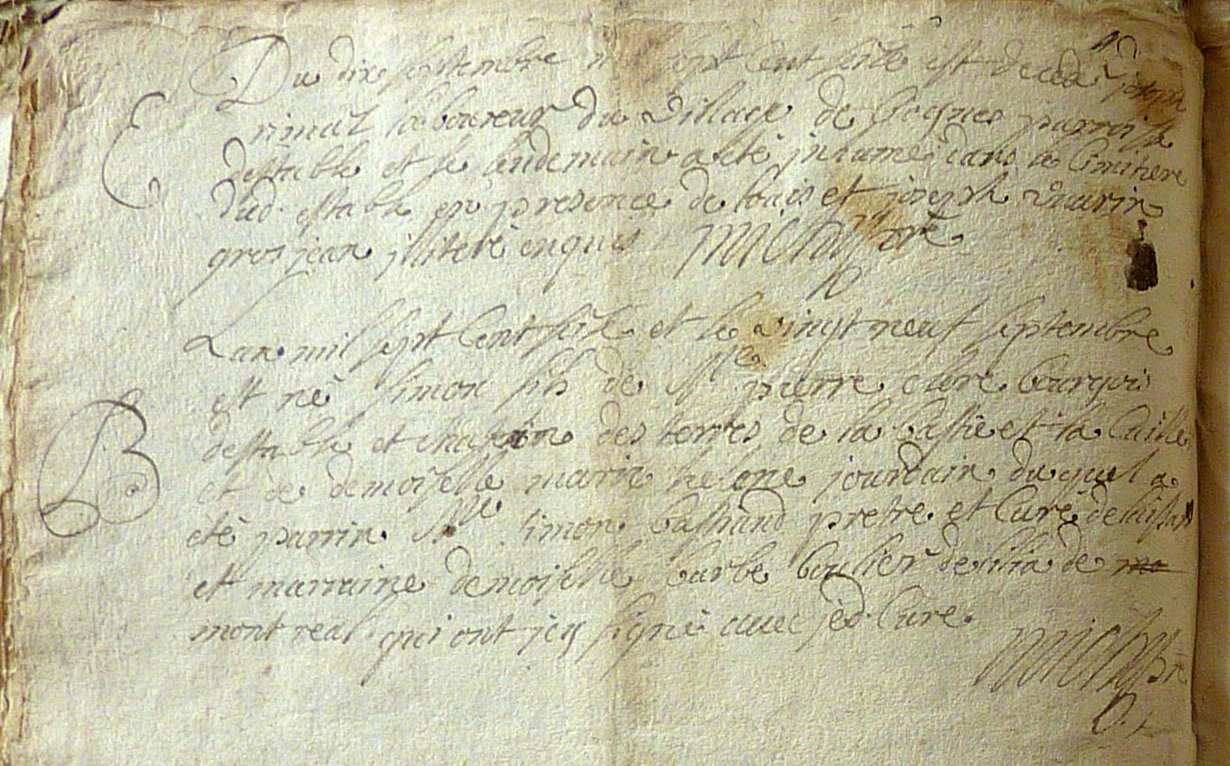 Du dix septembre mil sept cent seise est decede
E
rimal laboureur du village de parroisse
destable et le lendemain a eté inhumé dans le cimitiere
dud. estable en presence de louis et joseph vaurin
grosjean jlliteré enquis Michy ptre
Lan mil sept cent seise et le vingt neuf septembre
est né simon fils de Mre pierre cure bourgois
B
destable et des terres de la bastie et la Caille
et de demoiselle marie helene jourdain duquel a
eté parrin Mre simon prestre et curé
et marraine demoiselle barbe boulier de
montreal qui ont jcy signé avec led. Curé.
Michy ptre